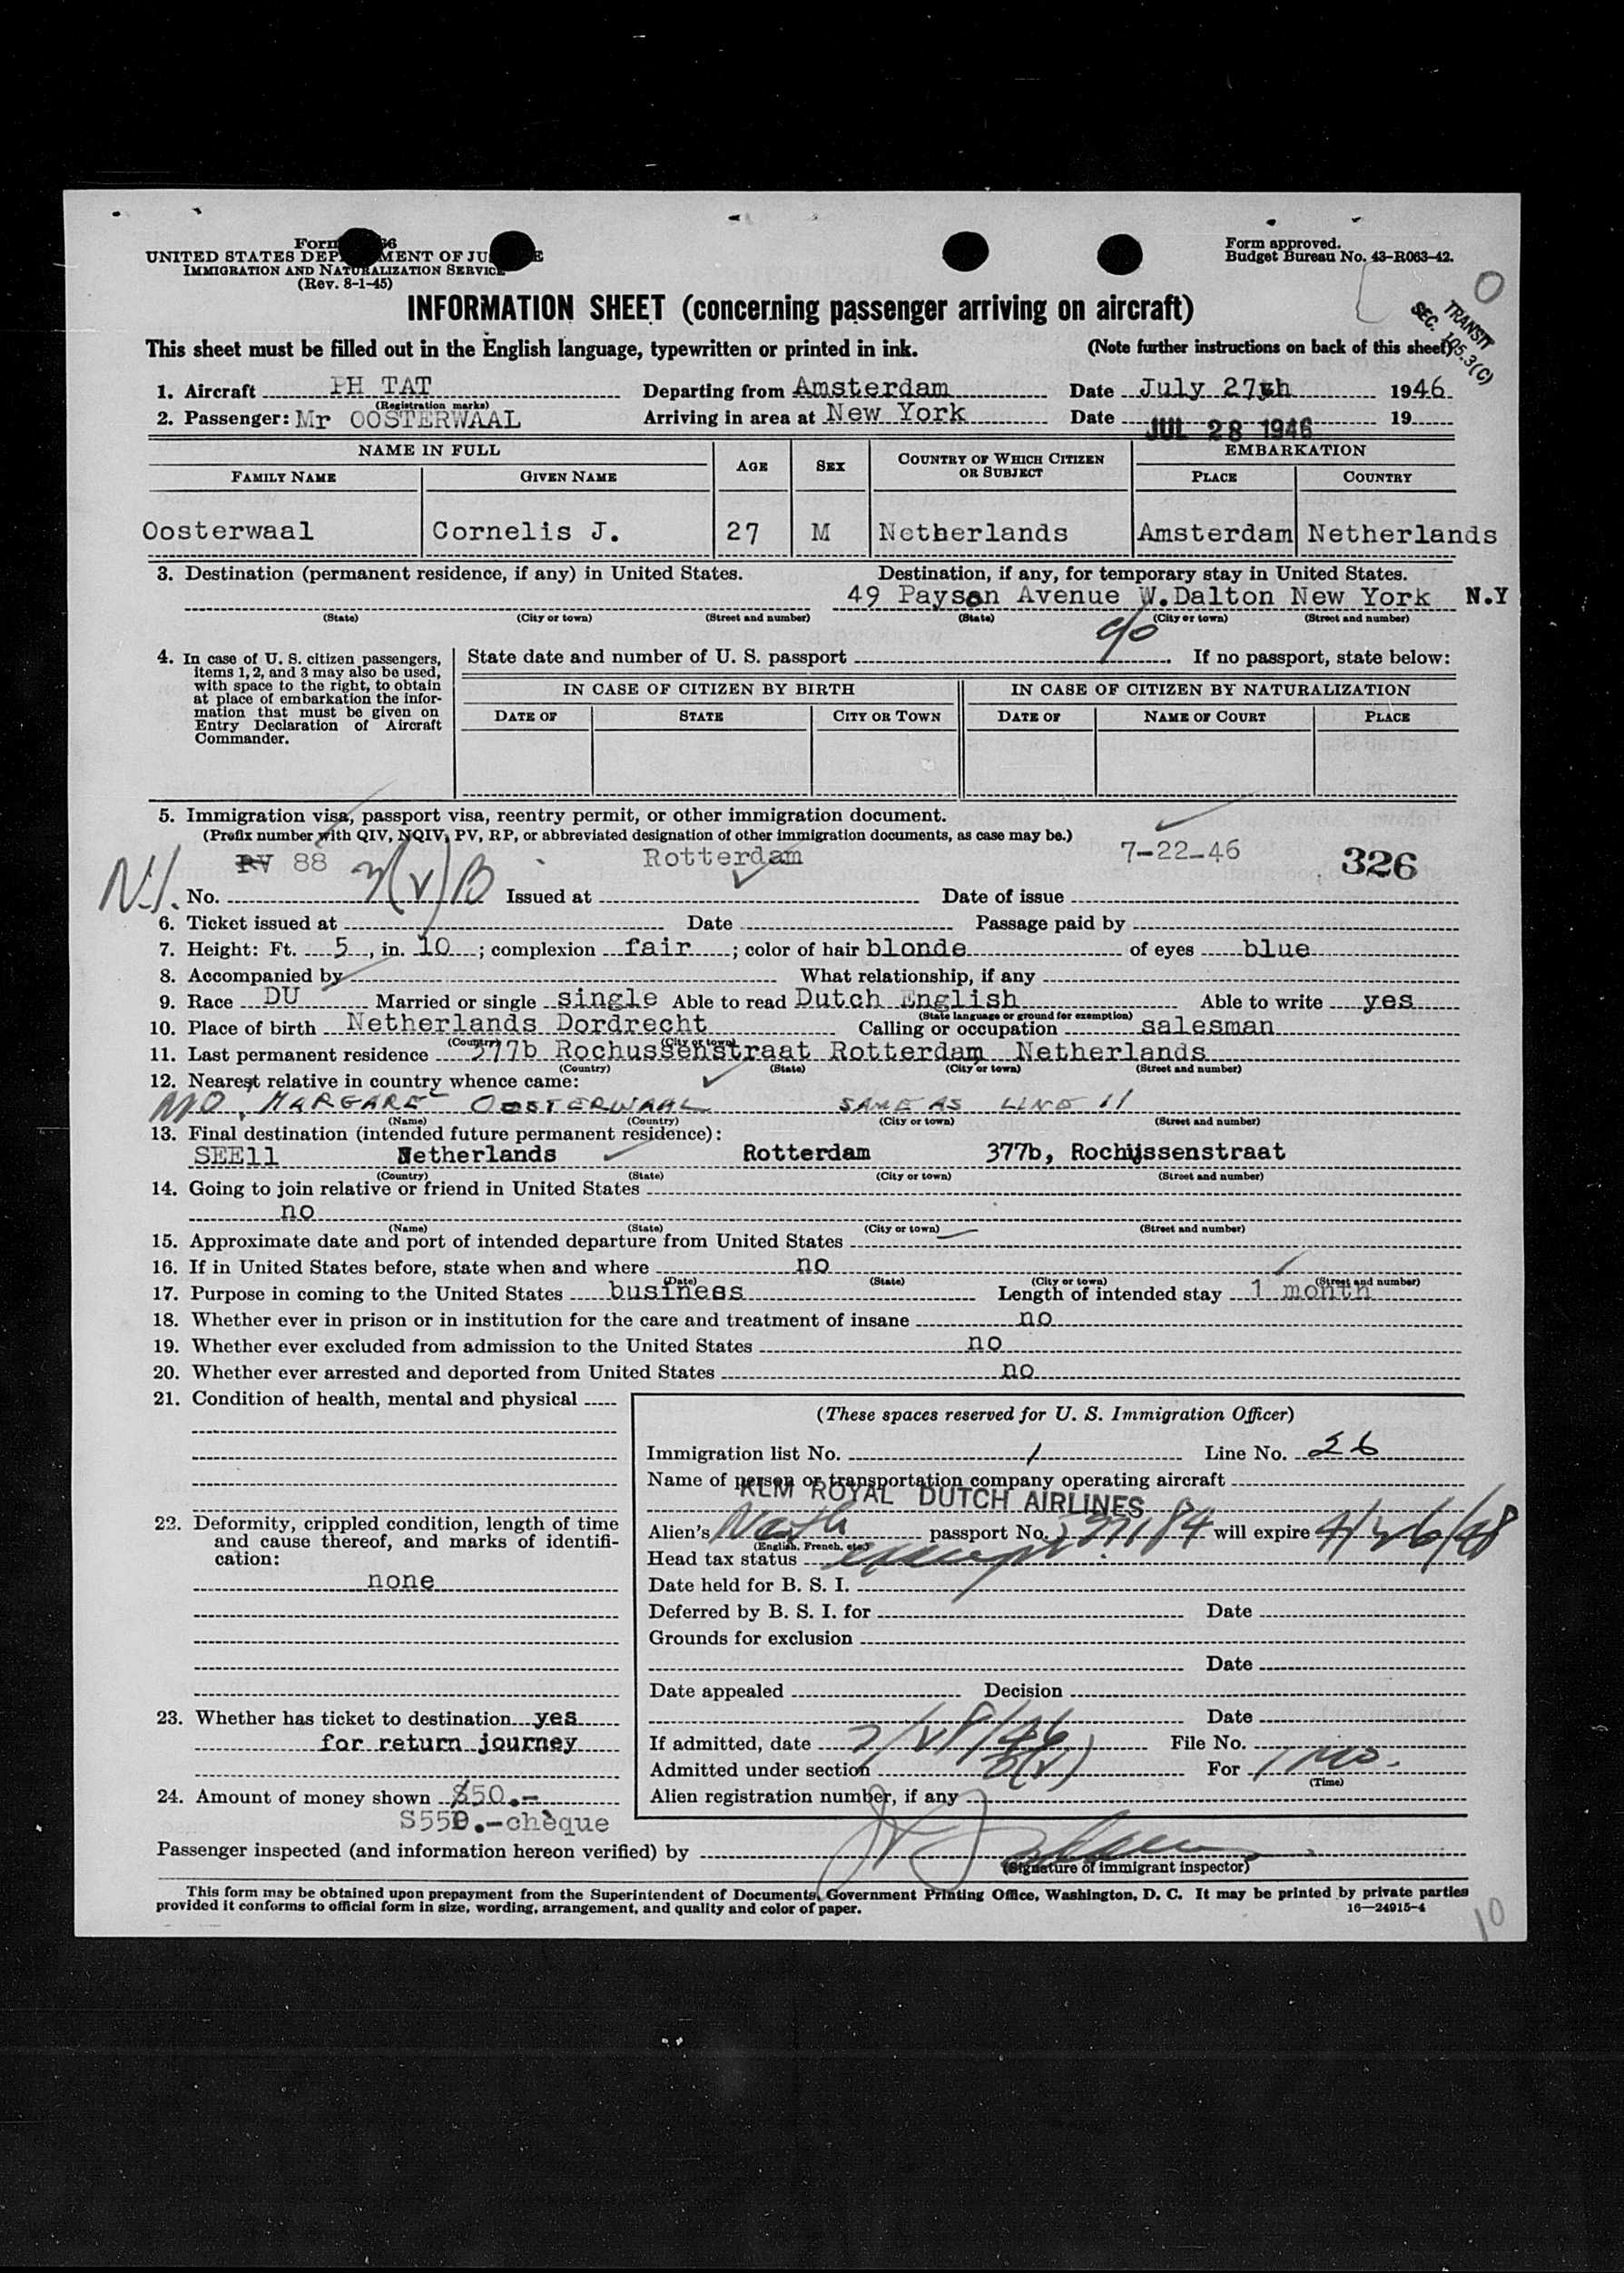 Form 66
UNITED STATES DEP MENT OF JU E
IMMIGRATION AND NATURALIZATION SERVICE
(Rev. 8-1-45)
Form approved.
Budget Bureau No. 43-R063-42.
TRANSIT
SEC. 105.3(C)
INFORMATION SHEET (concerning passenger arriving on aircraft)
This sheet must be filled out in the English language, typewritten or printed in ink. (Note further instructions on back of this sheet)
1. Aircraft PH TAT Departing from Amsterdam Date July 27th 1946
(Registration marks)
2. Passenger: Mr OOSTERWAAL Arriving in area at New York Date JUL 28 1946 19
NAME IN FULL AGE SEX COUNTRY OF WHICH CITIZEN OR SUBJECT EMBARKATION
FAMILY NAME GIVEN NAME PLACE COUNTRY
Oosterwaal Cornelis J. 27 M Netherlands Amsterdam Netherlands
3. Destination (permanent residence, if any) in United States. Destination, if any, for temporary stay in United States.
49 Payson Avenue W.Dalton New York N.Y
(State) (City or town) (Street and number) (State) (City or town) (Street and number)
c/o
4. In case of U. S. citizen passengers, items 1, 2, and 3 may also be used, with space to the right, to obtain at place of embarkation the information that must be given on Entry Declaration of Aircraft Commander.
State date and number of U. S. passport If no passport, state below:
IN CASE OF CITIZEN BY BIRTH IN CASE OF CITIZEN BY NATURALIZATION
DATE OF STATE CITY OR TOWN DATE OF NAME OF COURT PLACE
5. Immigration visa, passport visa, reentry permit, or other immigration document.
(Prefix number with QIV, NQIV, PV, RP, or abbreviated designation of other immigration documents, as case may be.)
PV 88 3(v)B Rotterdam 7-22-46 326
No. Issued at Date of issue
6. Ticket issued at Date Passage paid by
7. Height: Ft. 5, in. 10; complexion fair; color of hair blonde of eyes blue
8. Accompanied by What relationship, if any
9. Race DU Married or single single Able to read Dutch English Able to write yes
(State language or ground for exemption)
10. Place of birth Netherlands Dordrecht Calling or occupation salesman
(Country) (City or town)
11. Last permanent residence 377b Rochussenstraat Rotterdam Netherlands
(Country) (State) (City or town) (Street and number)
12. Nearest relative in country whence came:
MO, MARGARET OOSTERWAAL SAME AS LINE 11
(Name) (Country) (City or town) (Street and number)
13. Final destination (intended future permanent residence):
SEE11 Netherlands Rotterdam 377b, Rochussenstraat
(Country) (State) (City or town) (Street and number)
14. Going to join relative or friend in United States
no
(Name) (State) (City or town) (Street and number)
15. Approximate date and port of intended departure from United States
16. If in United States before, state when and where no
(Date) (State) (City or town) (Street and number)
17. Purpose in coming to the United States business Length of intended stay 1 month
18. Whether ever in prison or in institution for the care and treatment of insane no
19. Whether ever excluded from admission to the United States no
20. Whether ever arrested and deported from United States no
21. Condition of health, mental and physical
22. Deformity, crippled condition, length of time and cause thereof, and marks of identification:
none
23. Whether has ticket to destination yes
for return journey
24. Amount of money shown $50.-
S550.-chèque
(These spaces reserved for U. S. Immigration Officer)
Immigration list No. 1 Line No. 26
Name of person or transportation company operating aircraft
KLM ROYAL DUTCH AIRLINES
Alien's Neth passport No. will expire
(English, French, etc.)
Head tax status exempt
Date held for B. S. I.
Deferred by B. S. I. for Date
Grounds for exclusion
Date
Date appealed Decision
Date
If admitted, date File No.
Admitted under section 3(v) For 1 mo.
(Time)
Alien registration number, if any
Passenger inspected (and information hereon verified) by
(Signature of immigrant inspector)
This form may be obtained upon prepayment from the Superintendent of Documents, Government Printing Office, Washington, D. C. It may be printed by private parties
provided it conforms to official form in size, wording, arrangement, and quality and color of paper. 16—24915-4
10